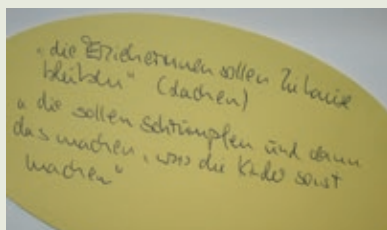 „die Erzieherinnen sollen zu Hause
bleiben“ (Lachen)
„die sollen schrumpfen und dann
das machen, was die Kinder sonst
machen“